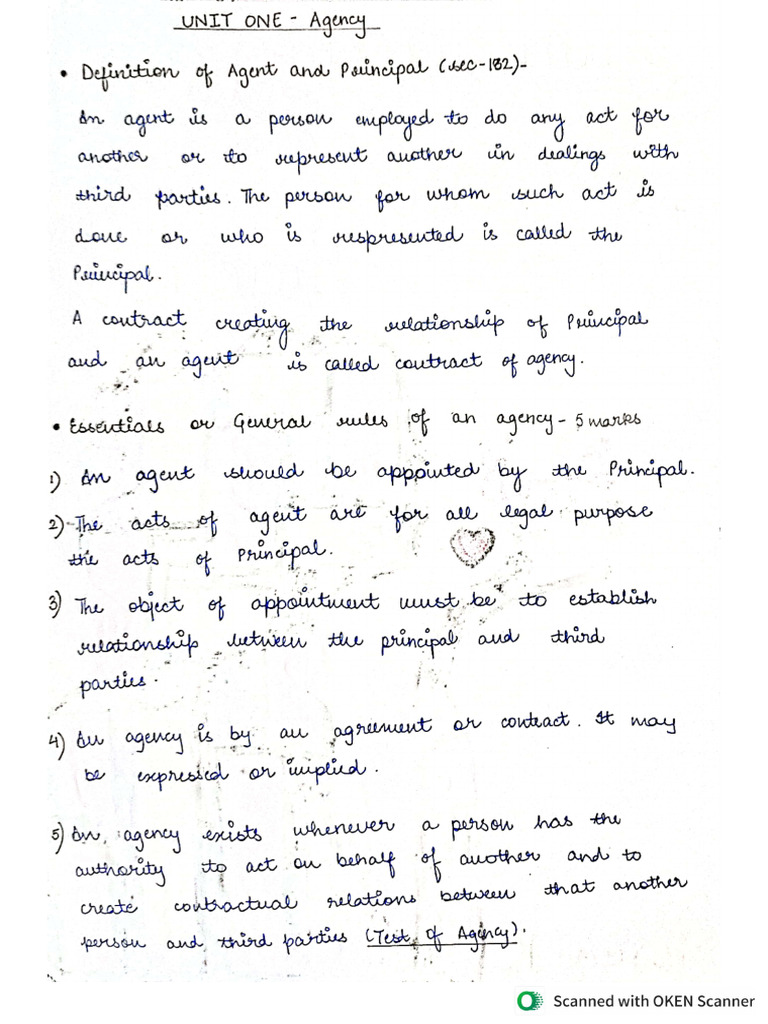 UNIT ONE - Agency
• Definition of Agent and Principal (sec-182)-
An agent is a person employed to do any act for
another or to represent another in dealings with
third parties. The person for whom such act is
done or who is respresented is called the
Principal.
A contract creating the relationship of Principal
and an agent is called contract of agency.
• Essentials or General rules of an agency - 5 marks
1) An agent should be appointed by the Principal.
2) The acts of agent are for all legal purpose
the acts of Principal.
3) The object of appointment must be to establish
relationship between the principal and third
parties.
4) An agency is by an agreement or contract. It may
be expressed or implied.
5) An agency exists whenever a person has the
authority to act on behalf of another and to
create contractual relations between that another
person and third parties (Test of Agency).
Scanned with OKEN Scanner